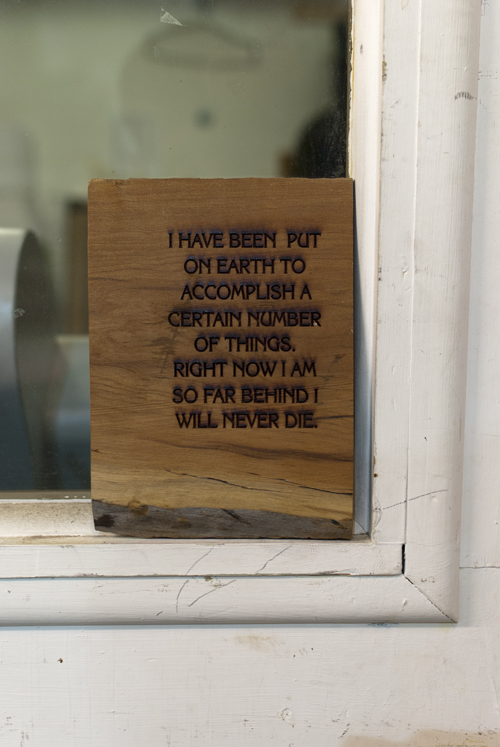 I HAVE BEEN PUT
ON EARTH TO
ACCOMPLISH A
CERTAIN NUMBER
OF THINGS.
RIGHT NOW I AM
SO FAR BEHIND I
WILL NEVER DIE.